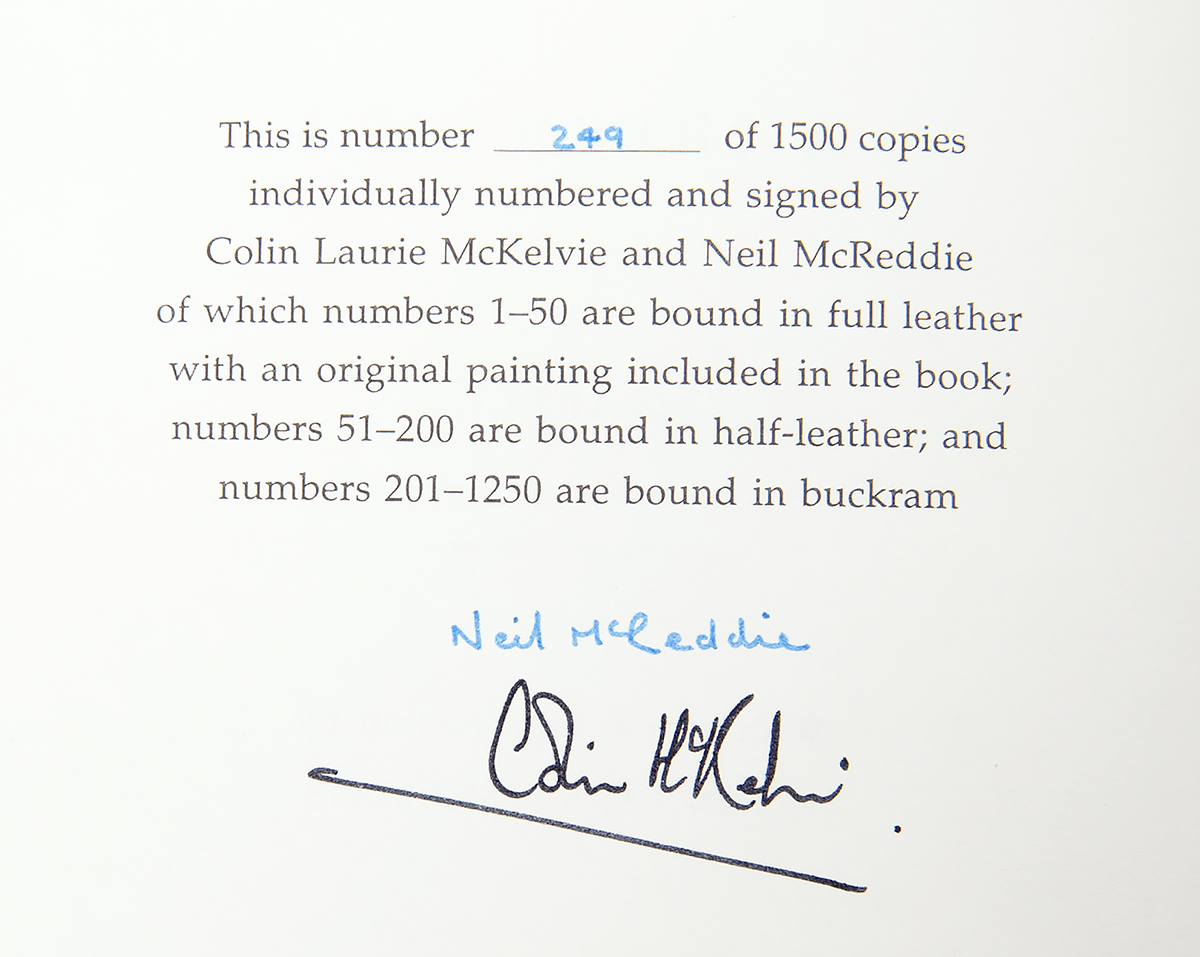 This is number 249 of 1500 copies
individually numbered and signed by
Colin Laurie McKelvie and Neil McReddie
of which numbers 1–50 are bound in full leather
with an original painting included in the book;
numbers 51–200 are bound in half-leather; and
numbers 201–1250 are bound in buckram
Neil McReddie
Colin McKelvie